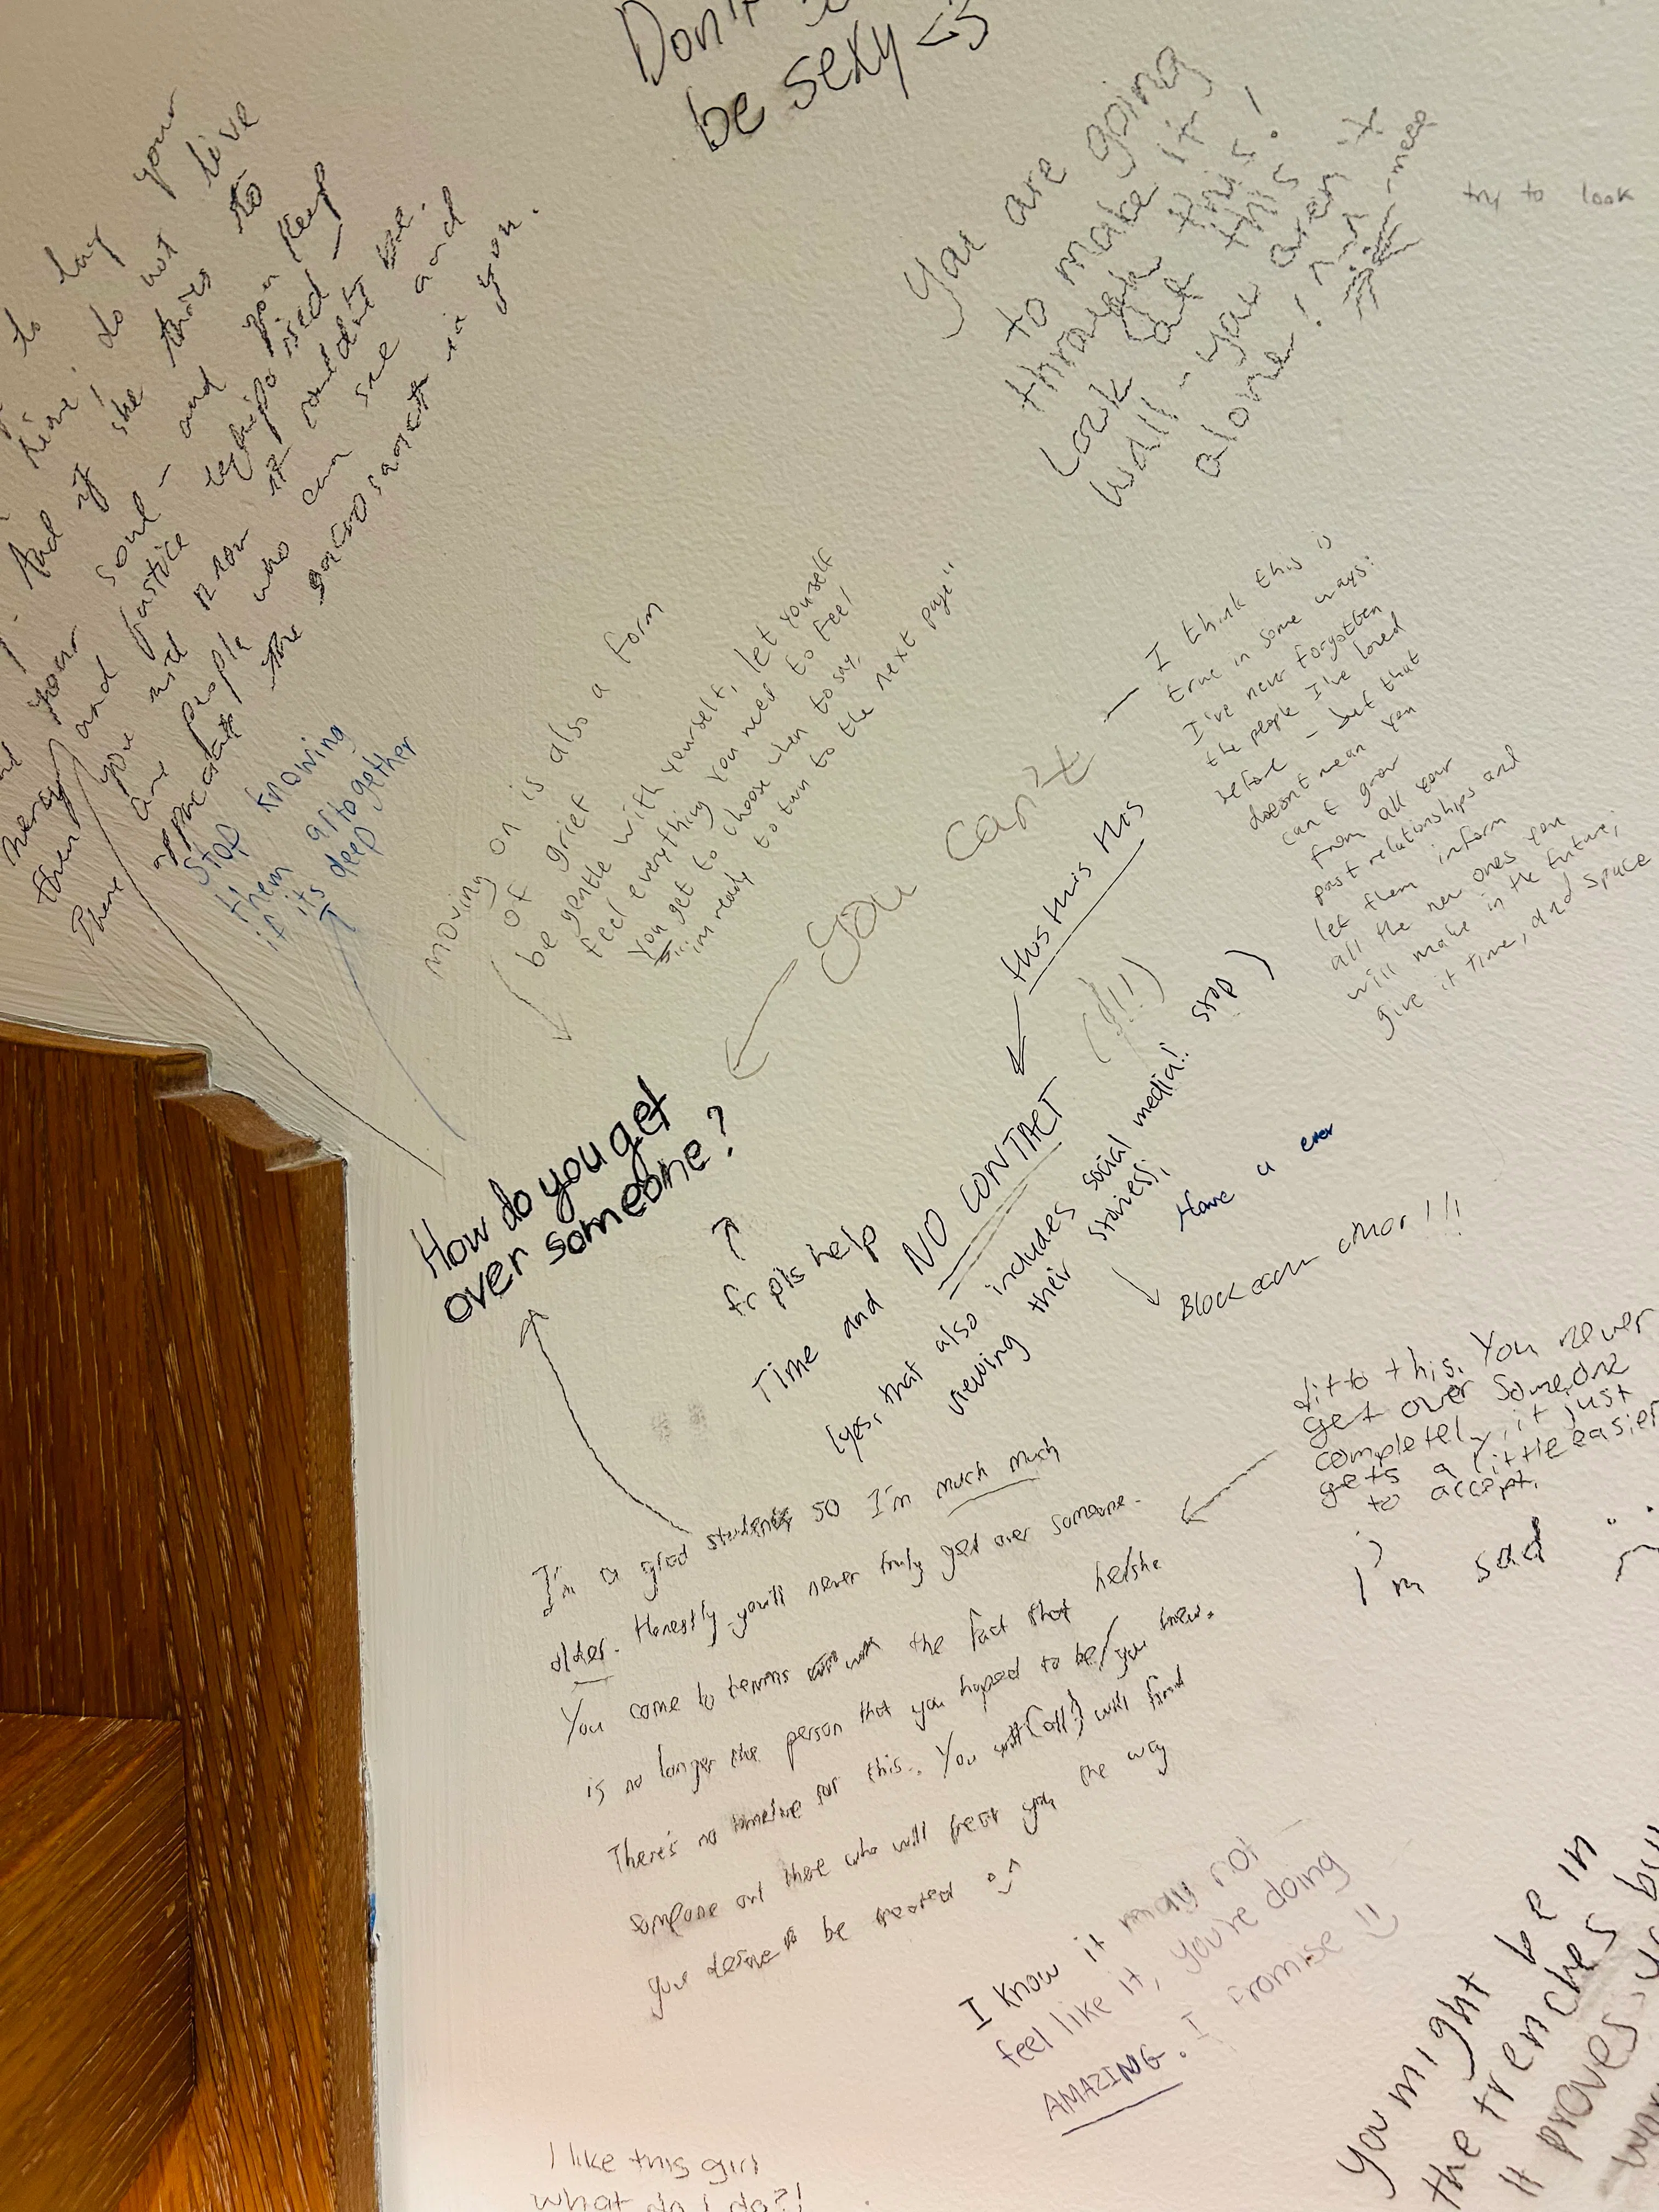 Don't
be sexy <3
You are going
to make it
through this!
Look at this
wall - you aren't
alone!
try to look
to lay your
do not live
And if she tries to
soul - and you keep
justice
you and know it couldn't be.
There are people who can see and
appreciate the sacred in you.
Stop knowing
them altogether
if its deep
moving on is also a form
of grief
be gentle with yourself, let yourself
feel everything you need to feel
you get to choose when to say,
"... im ready to turn to the next page"
You can't
I think this is
true in some ways:
I've never forgotten
the people I've loved
before - but that
doesn't mean you
can't grow
from all your
past relationships and
let them inform
all the new ones you
will make in the future;
give it time, and space
this this this
How do you get
over someone?
fr pls help
Time and NO CONTACT (!!!)
(yes, that also includes social media! stop
viewing their stories; )
Have a ever
Block each other!!!
ditto this. You never
get over someone
completely, it just
gets a little easier
to accept.
I'm sad :(
I'm a grad student so I'm much much
older. Honestly you'll never truly get over someone.
You come to terms with the fact that he/she
is no longer the person that you hoped to be/you knew.
There's no timeline for this. You (all) will find
someone out there who will treat you the way
you deserve to be treated
I know it may not
feel like it, you're doing
AMAZING. I promise :)
You might be in
the trenches bu
it proves
I like this girl
what do I do?!